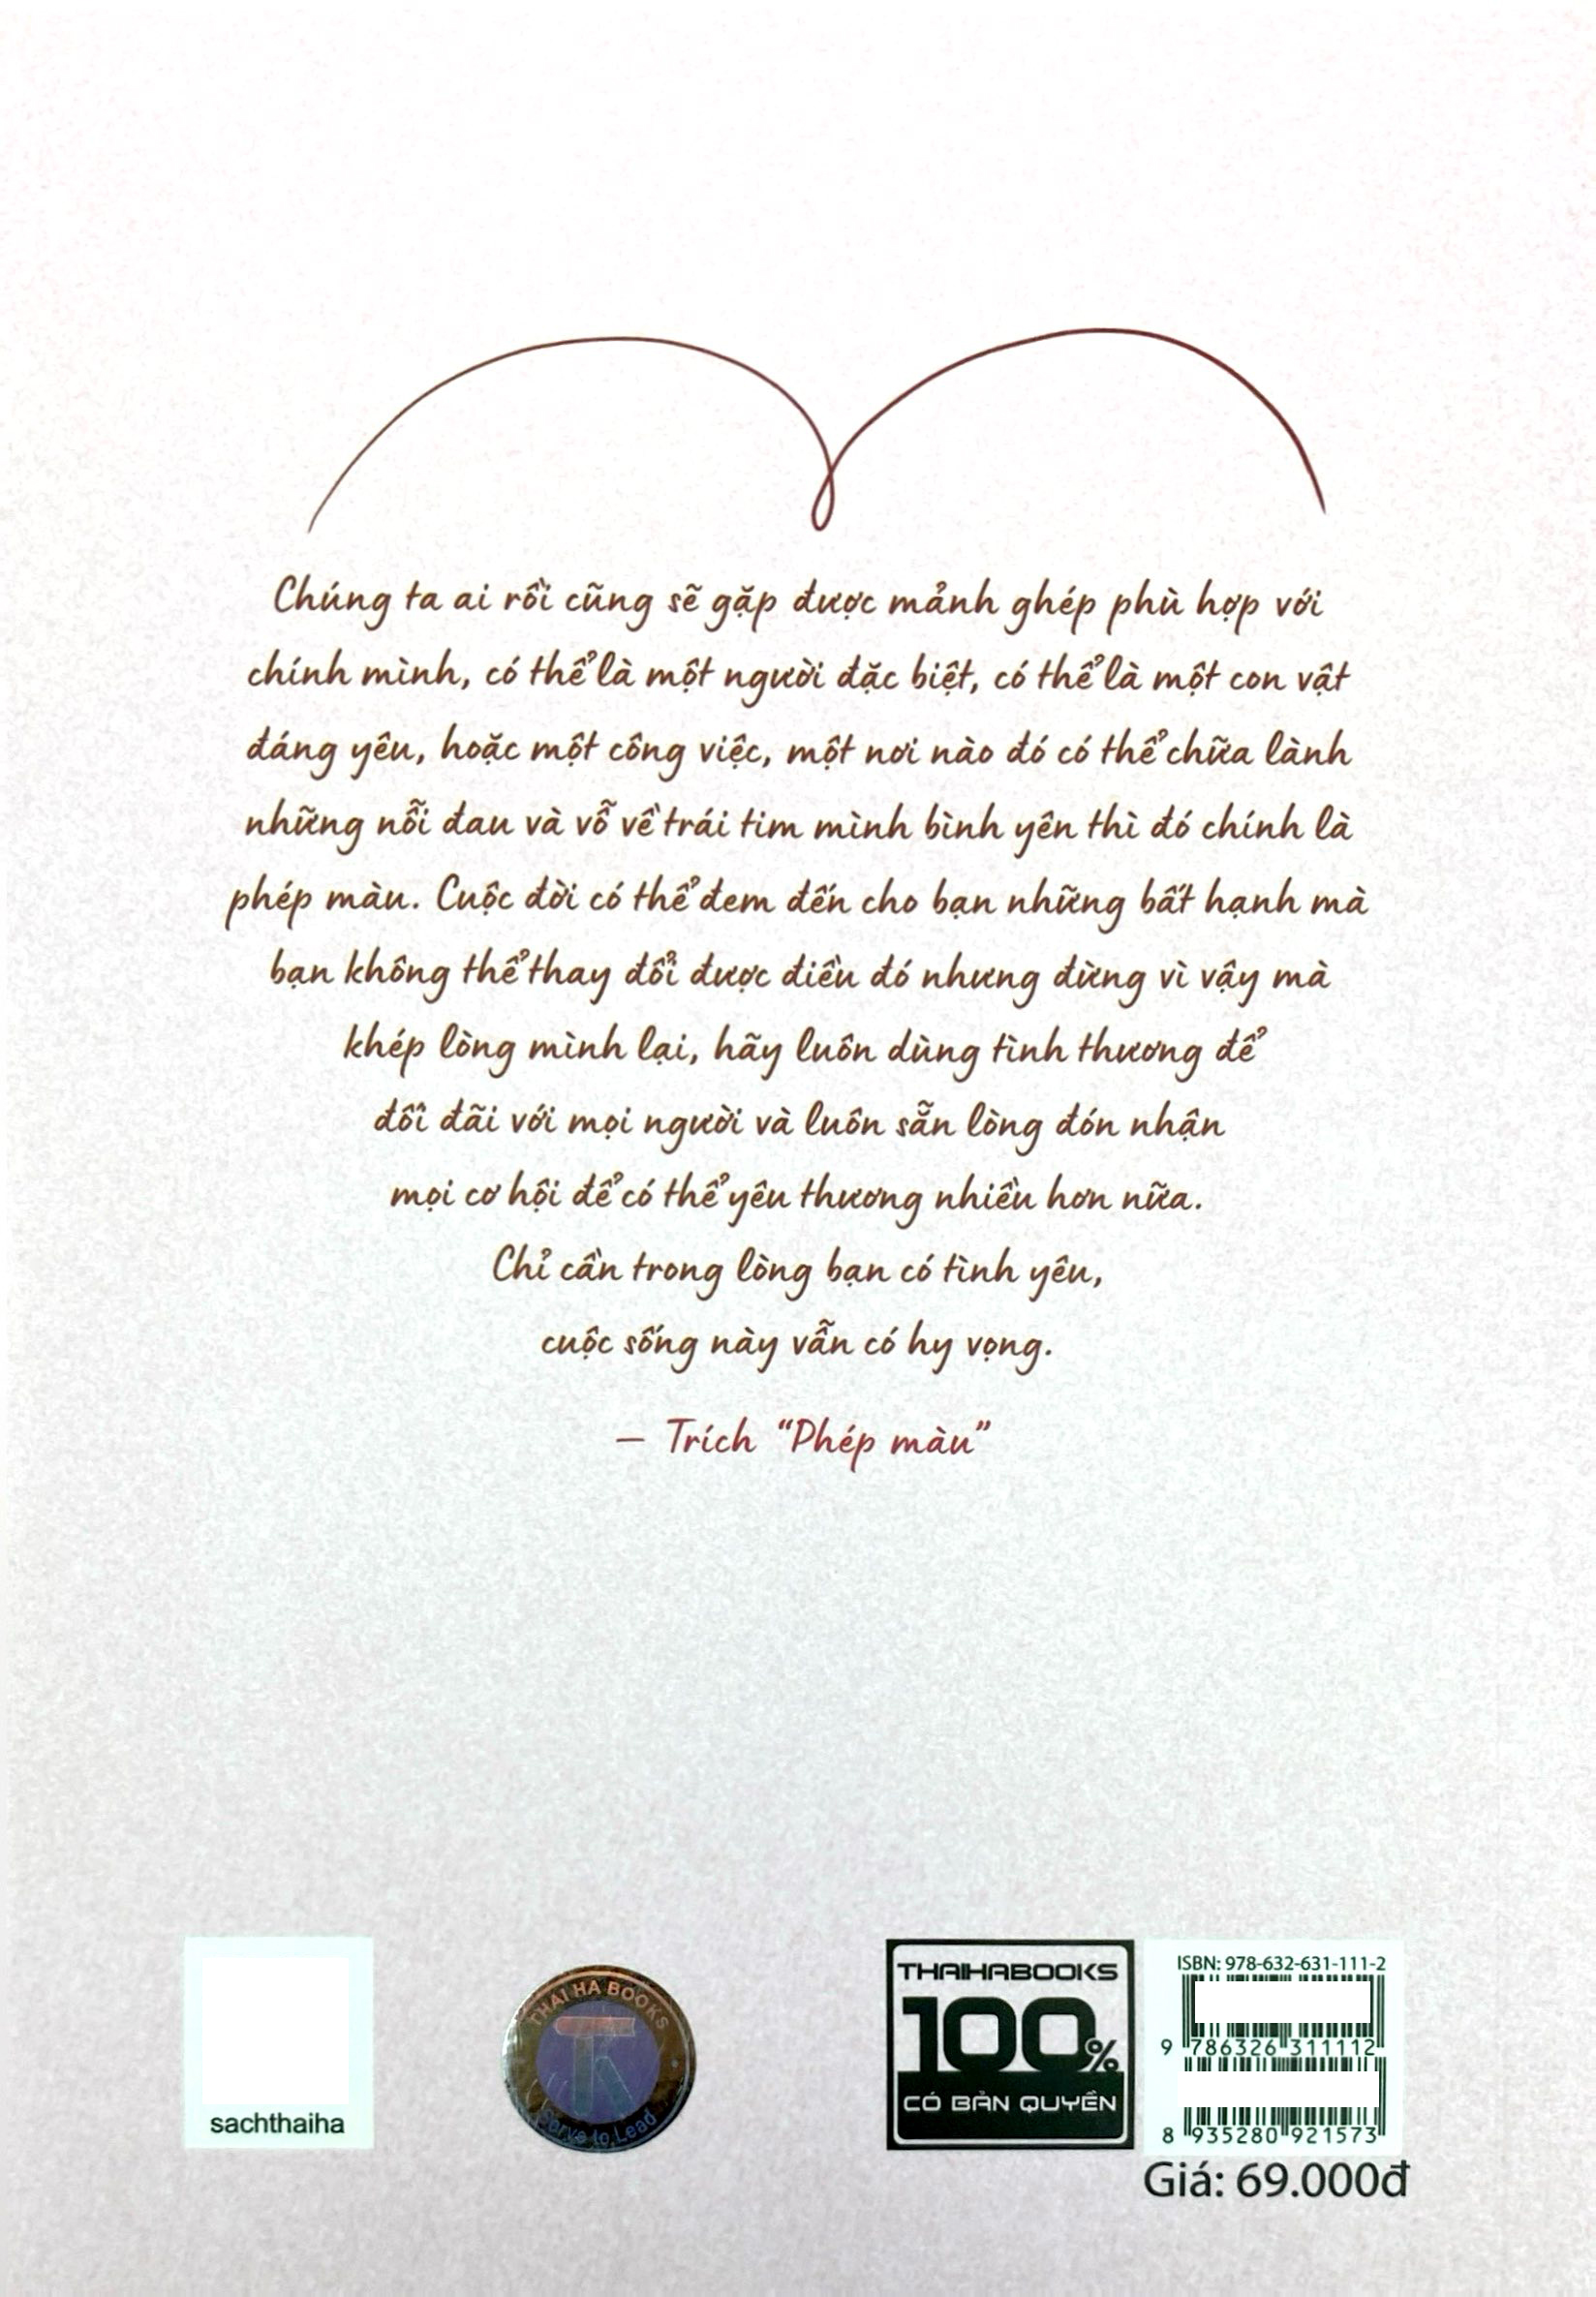 Chúng ta ai rồi cũng sẽ gặp được mảnh ghép phù hợp với
chính mình, có thể là một người đặc biệt, có thể là một con vật
đáng yêu, hoặc một công việc, một nơi nào đó có thể chữa lành
những nỗi đau và vỗ về trái tim mình bình yên thì đó chính là
phép màu. Cuộc đời có thể đem đến cho bạn những bất hạnh mà
bạn không thể thay đổi được điều đó nhưng đừng vì vậy mà
khép lòng mình lại, hãy luôn dùng tình thương để
đối đãi với mọi người và luôn sẵn lòng đón nhận
mọi cơ hội để có thể yêu thương nhiều hơn nữa.
Chỉ cần trong lòng bạn có tình yêu,
cuộc sống này vẫn có hy vọng.
– Trích “Phép màu”
sachthaiha
THAI HA BOOKS
Serve to Lead
THAIHABOOKS
100%
CÓ BẢN QUYỀN
ISBN: 978-632-631-111-2
9 786326 311112
8 935280 921573
Giá: 69.000đ